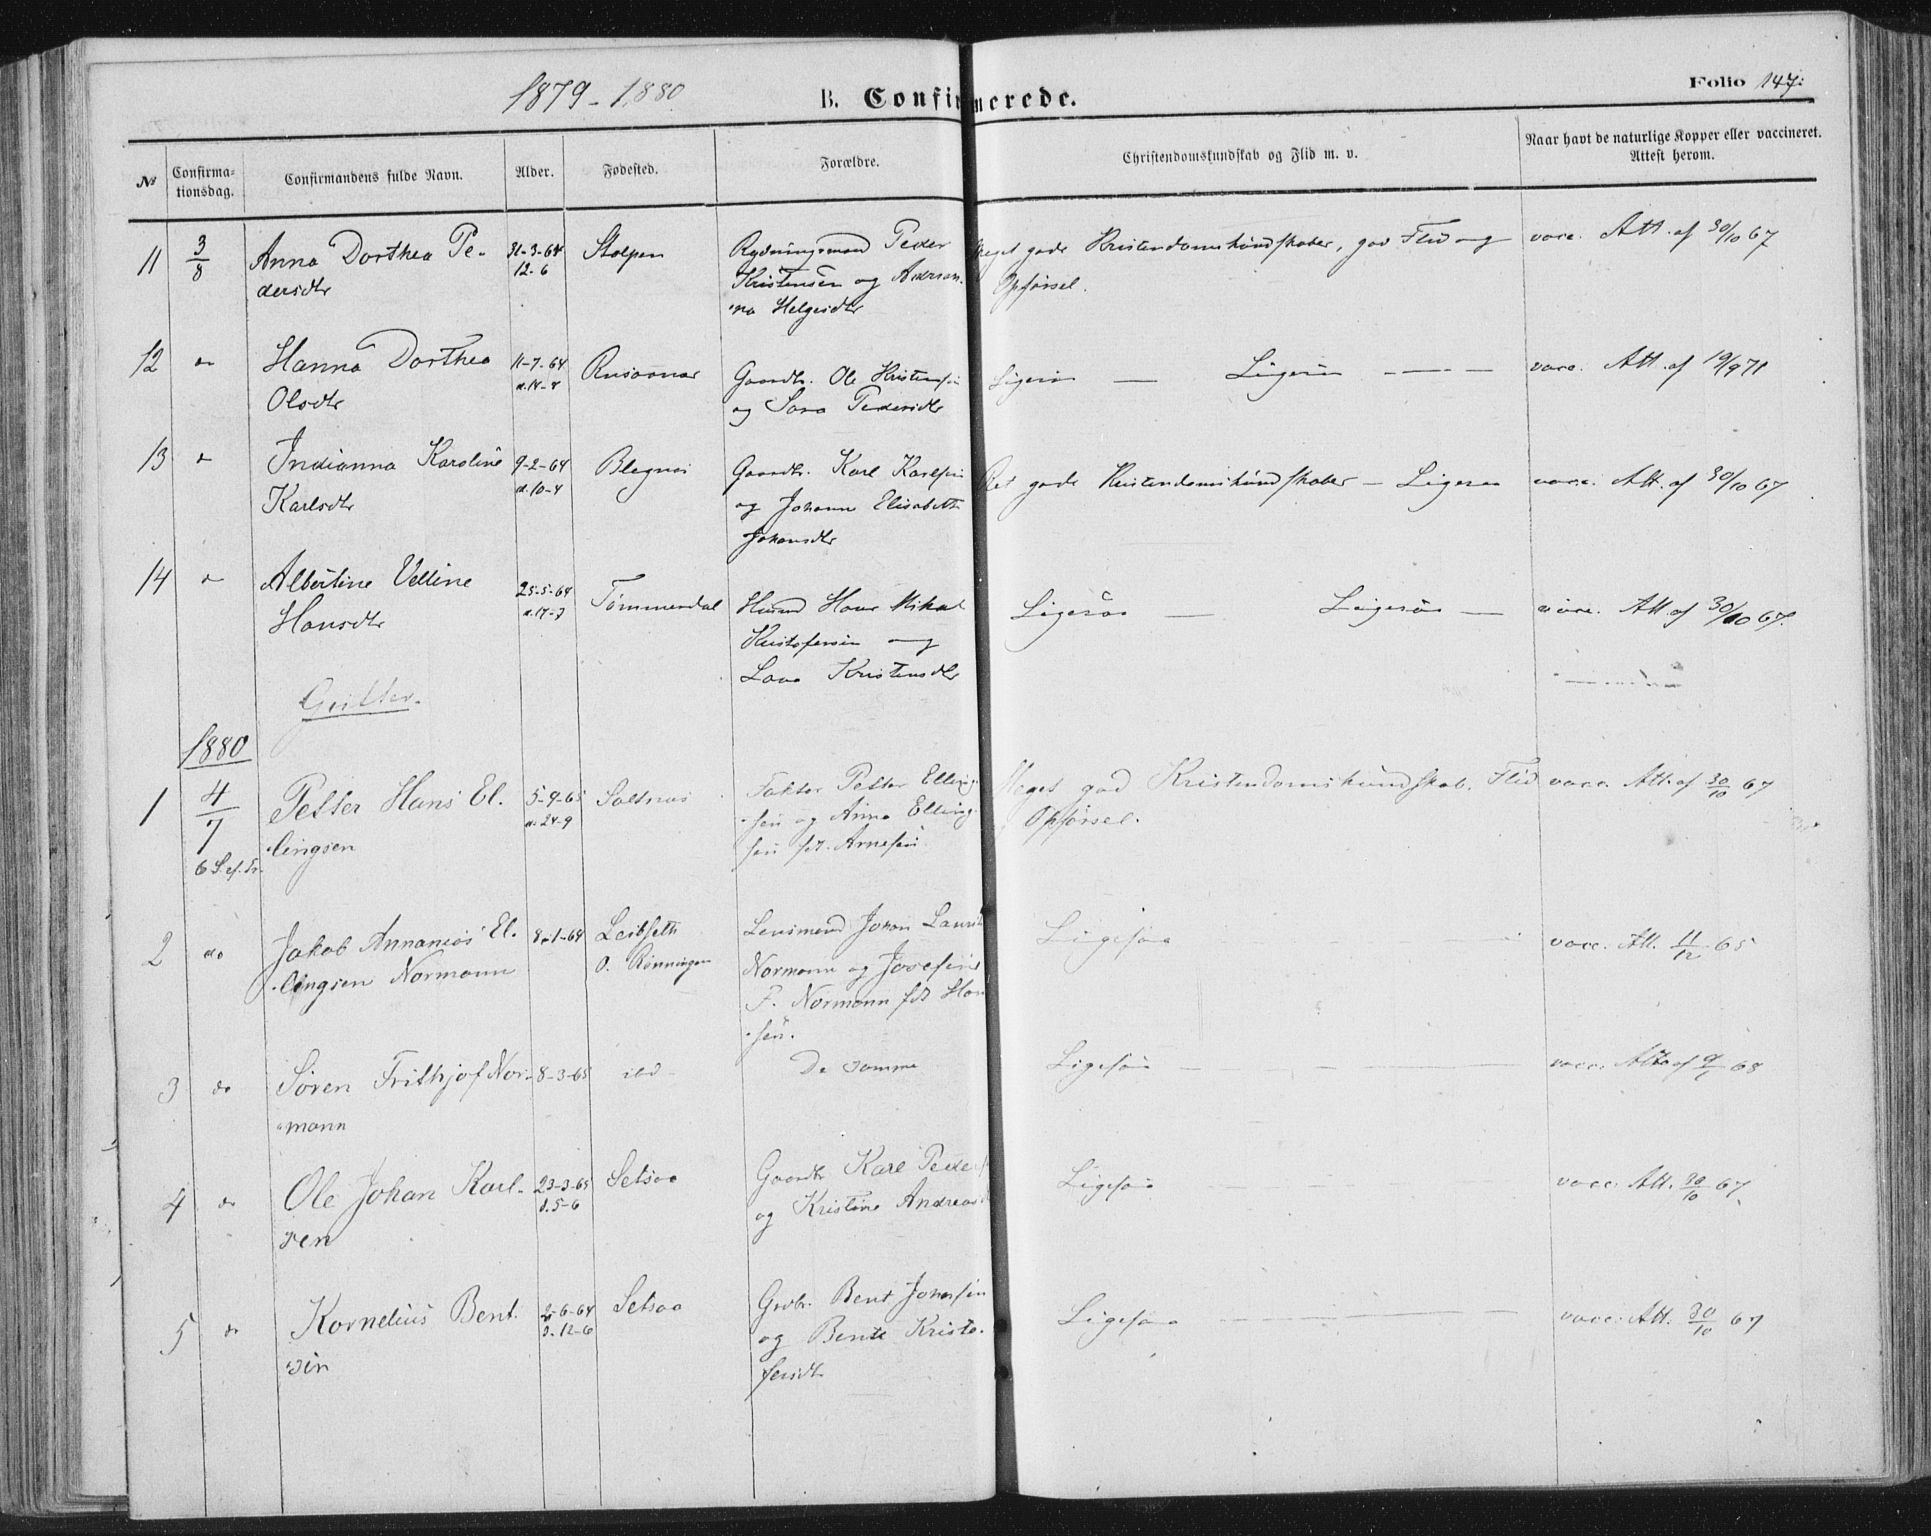 1879 - 1880
B. Confirmerede.
Folio 147.
№ Confirmationsdag. Confirmandens fulde Navn. Alder. Fødested. Forældre. Christendomskundskab og Flid m. v. Naar havt de naturlige Kopper eller vaccineret. Attest herom.
11 3/8 Anna Dorthea Pe- 31-3-64 Stolpen Rydningsmand Peder Meget gode Kristendomskundskaber, god Flid og vacc. Att. af 30/10 67
dersdtr 12-6 Kristensen og Adrian- Opførsel.
na Helgesdtr
12 do Hanna Dorthea 11-7-64 Rusaanes Gaardbr. Ole Kristensen Ligesaa — Ligesaa - — - — vacc. Att. af 19/9 71
Olsdtr d. 14-8 og Sara Pedersdtr
13 do Indianna Karoline 9-2-64 Blegnæs Gaardbr. Karl Karlsen Ret gode Kristendomskundskaber — Ligesaa vacc. Att. af 30/10 67
Karlsdtr d. 10-4 og Johanne Elisabeth
Johansdtr
14 do Albertine Velline 25-5-64 Tømmerdal Husmd Hans Mikal Ligesaa — Ligesaa — vacc. Att. af 30/10 67.
Hansdtr d. 17-7 Kristofersen og
Lava Kristensdtr
1880
1 4/7 Petter Hans El- 5-9-65 Saltnæs Faktor Petter Elling- Meget god Kristendomskundskab. Flid vacc. Att. af 30/10 67
lingsen d. 24-9 sen og Anna Elling- Opførsel.
6 S. ef. Tr. sen fdt. Arnesen
2 do Jakob Annanias El- 8-1-64 Leibseth Lensmand Johan Laurits Ligesaa vacc. Att. 11/12 65
lingsen Normann O. Rønningen Normann og Josefine
F. Normann fdt Han-
sen.
3 do Søren Frithjof Nor- 8-3-65 ibd - De samme Ligesaa — - — vacc. Att. af 9/1 68
mann
4 do Ole Johan Karl- 23-3-65 Setsaa Gaardbr Karl Peders Ligesaa vacc. Att. 30/10 67
sen d. 5-6 og Kristine Andreas
5 do Kornelius Bent- 2-6-64 Setsaa Grdbr. Bent Johnsen Ligesaa vacc. Att. 30/10 67
sen d. 12-6 og Bente Kristo-
fersdtr